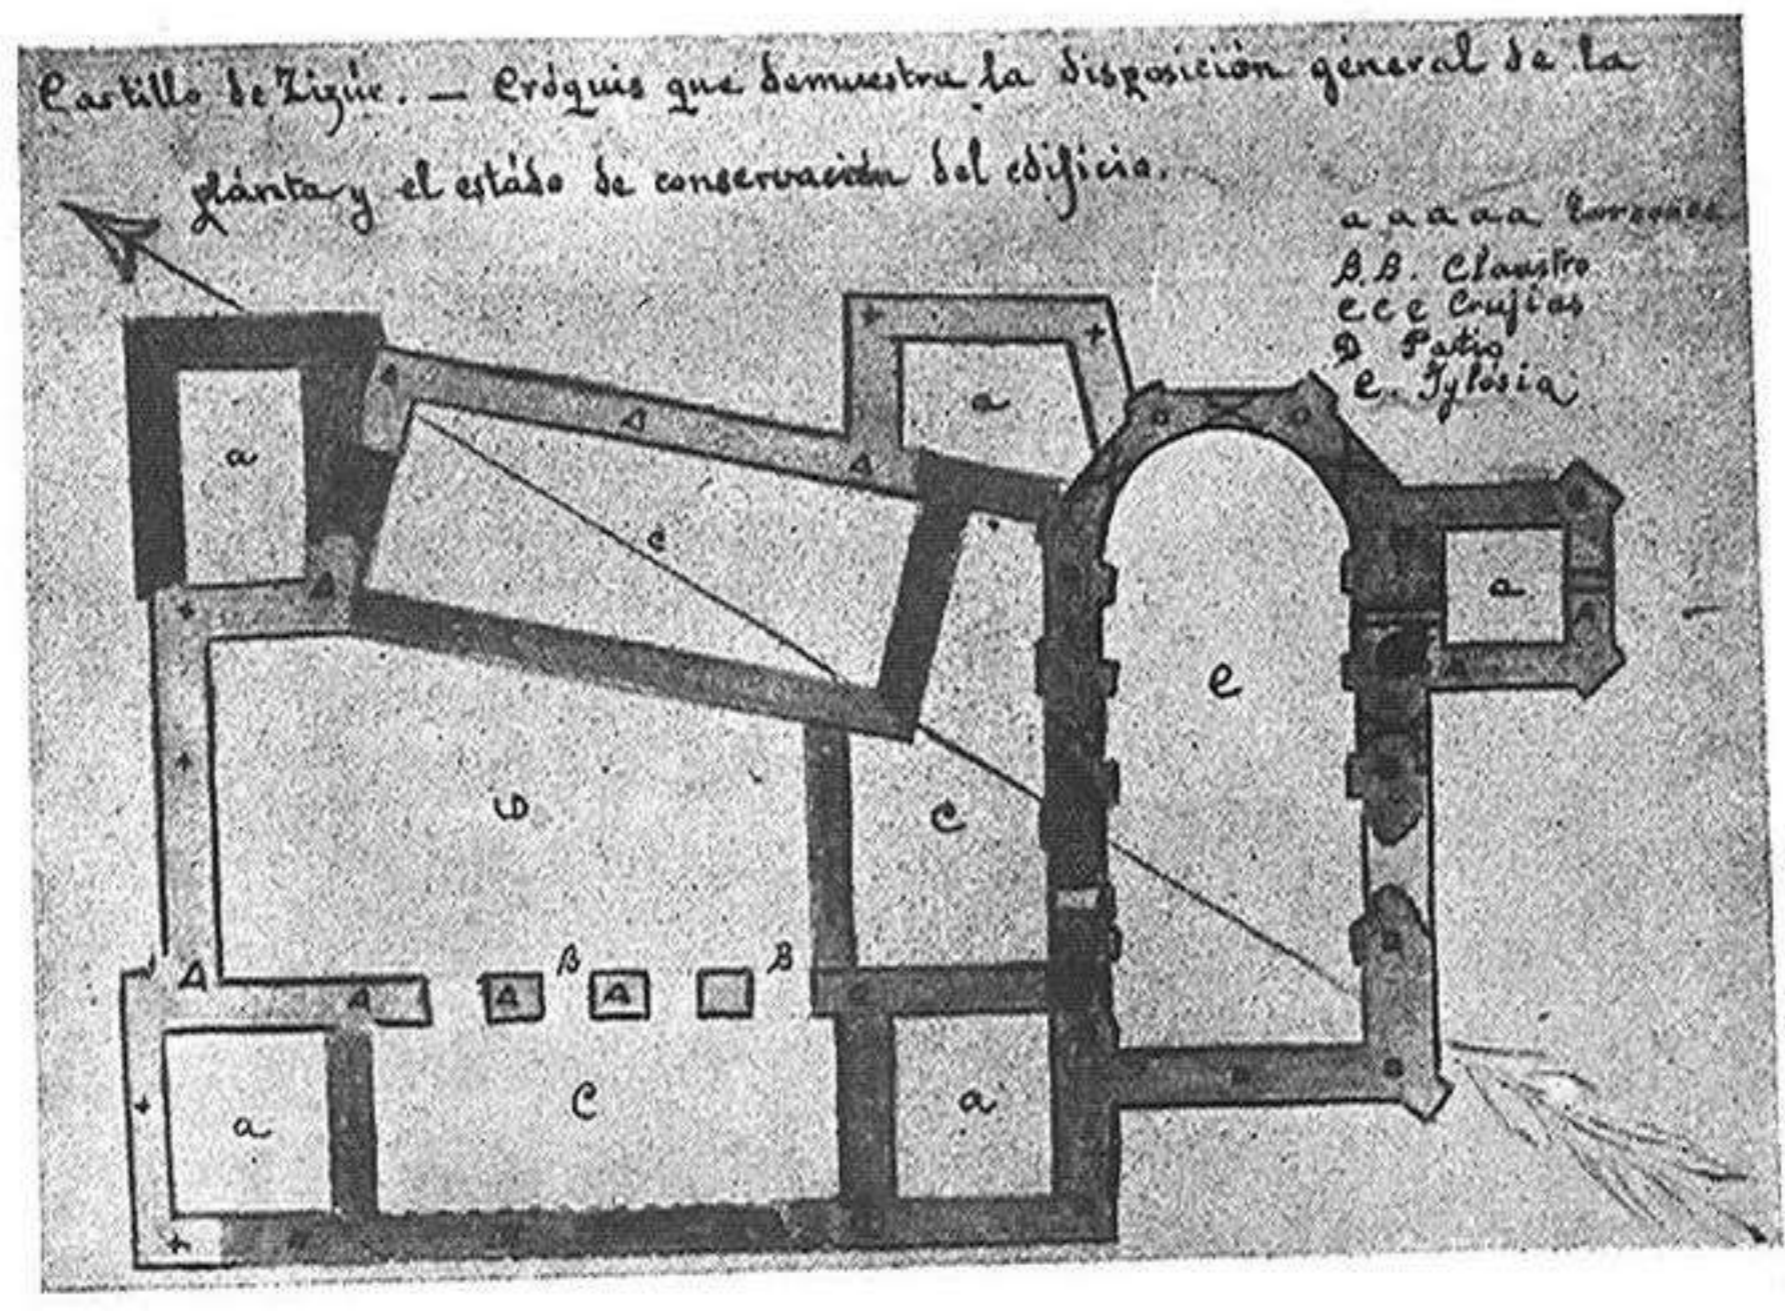 Castillo de Zigúr. — Cróquis que demuestra la disposición general de la
plánta y el estádo de conservación del edificio.
a a a a a Torreones
B.B. Claustro
c c c Crujías
D Patio
e. Yglésia
a
a
c
a
e
D
c
B
B
a
c
a